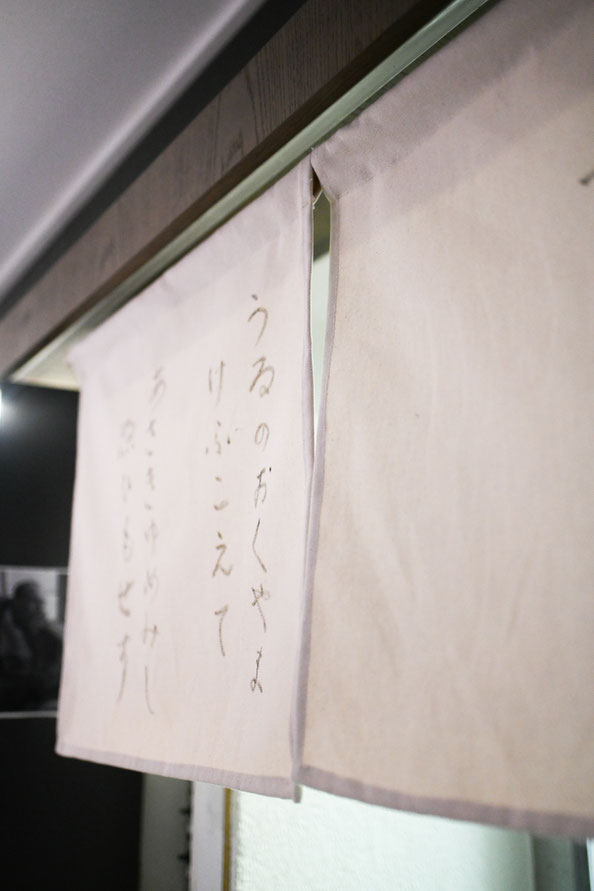 うゐのおくやま
けふこえて
あさきゆめみし
ゑひもせす